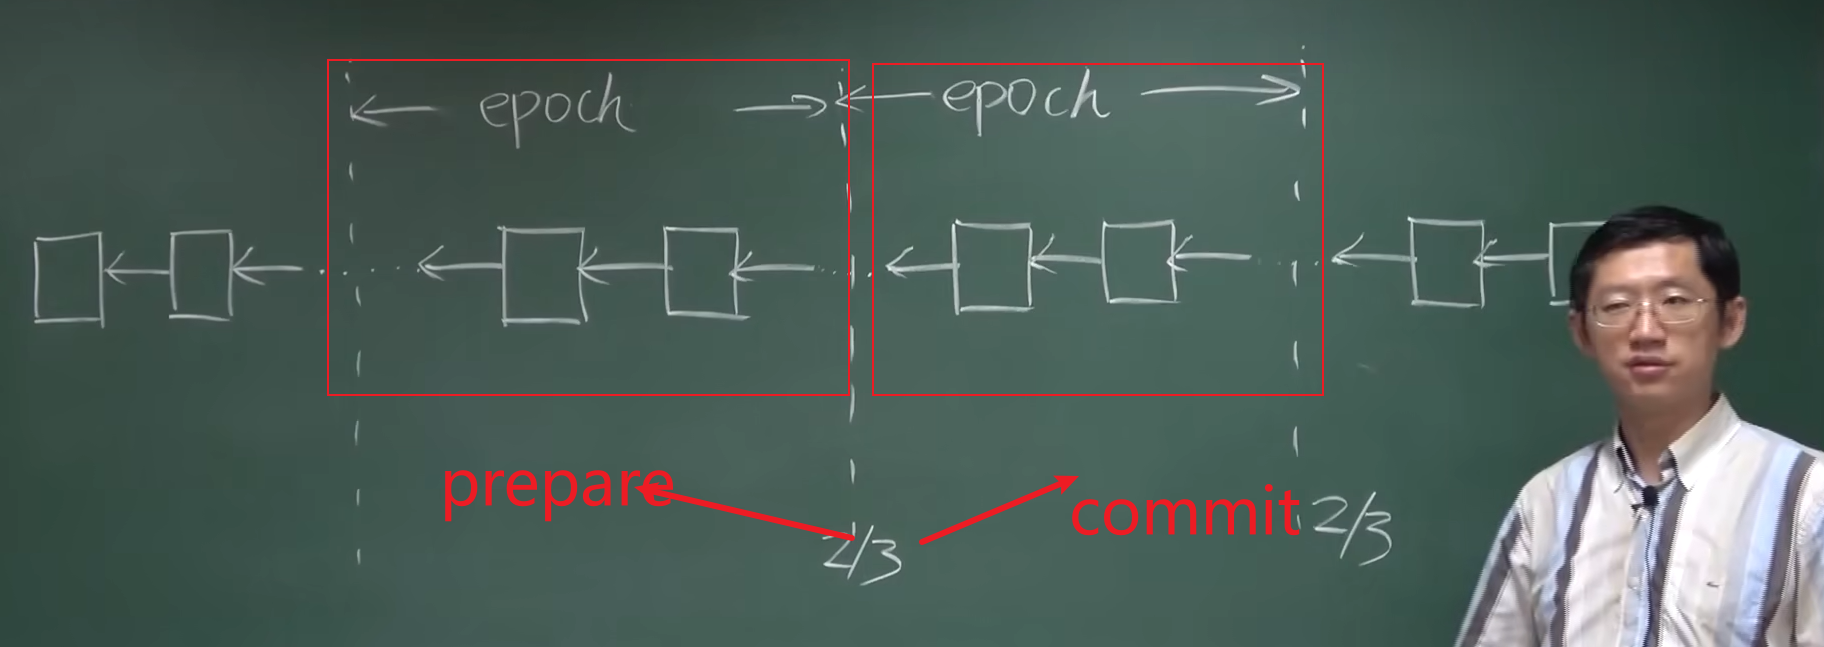 epoch epoch
prepare
commit 2/3
2/3